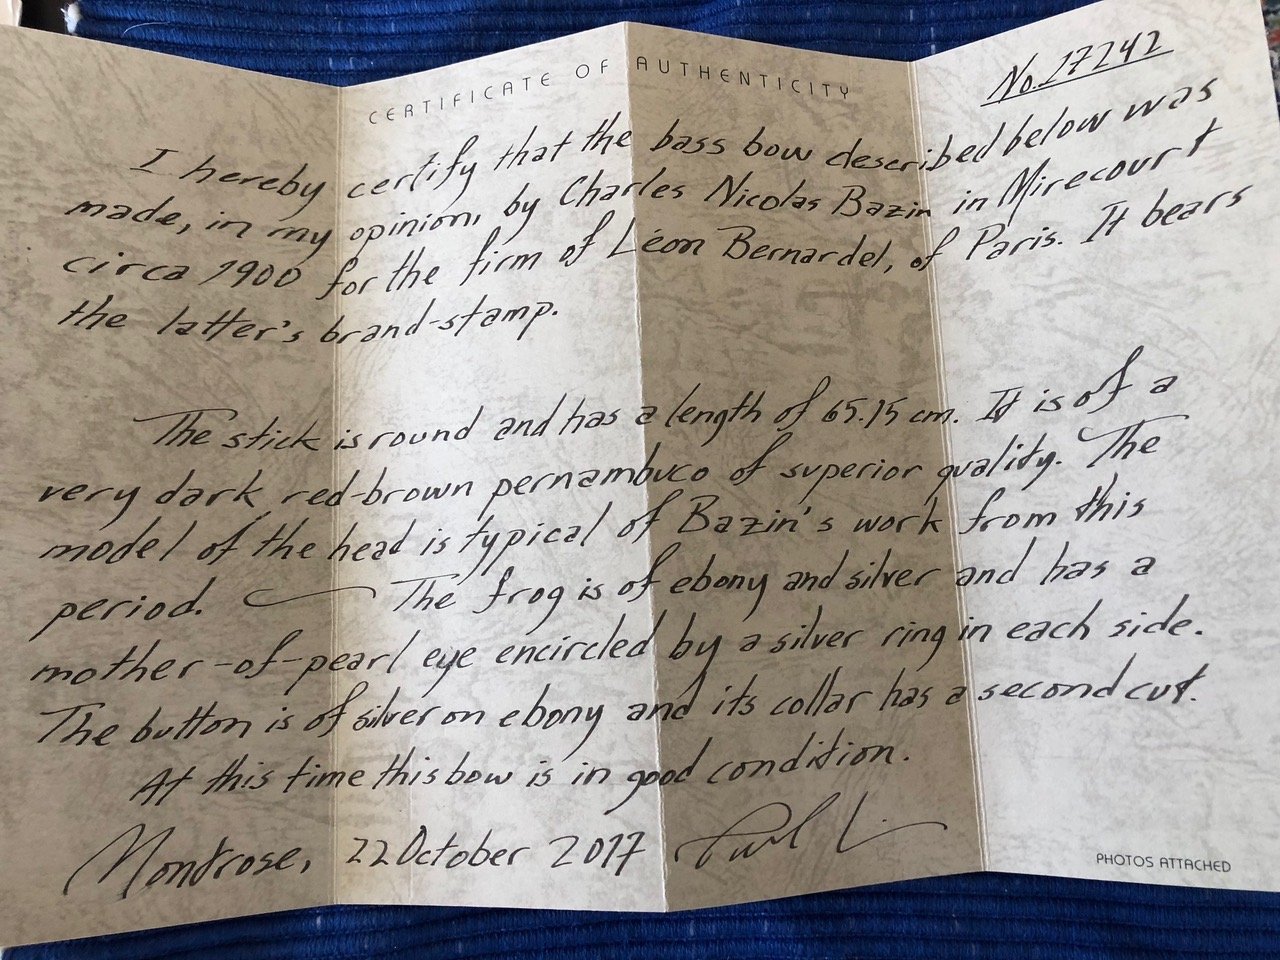 CERTIFICATE OF AUTHENTICITY
No. 17242
I hereby certify that the bass bow described below was
made, in my opinion, by Charles Nicolas Bazin in Mirecourt
circa 1900 for the firm of Léon Bernardel, of Paris. It bears
the latter's brand-stamp.
The stick is round and has a length of 65.15 cm. It is of a
very dark red-brown pernambuco of superior quality. The
model of the head is typical of Bazin's work from this
period. The frog is of ebony and silver and has a
mother-of-pearl eye encircled by a silver ring in each side.
The button is of silver on ebony and its collar has a second cut.
At this time this bow is in good condition.
Montrose, 22 October 2017
PHOTOS ATTACHED